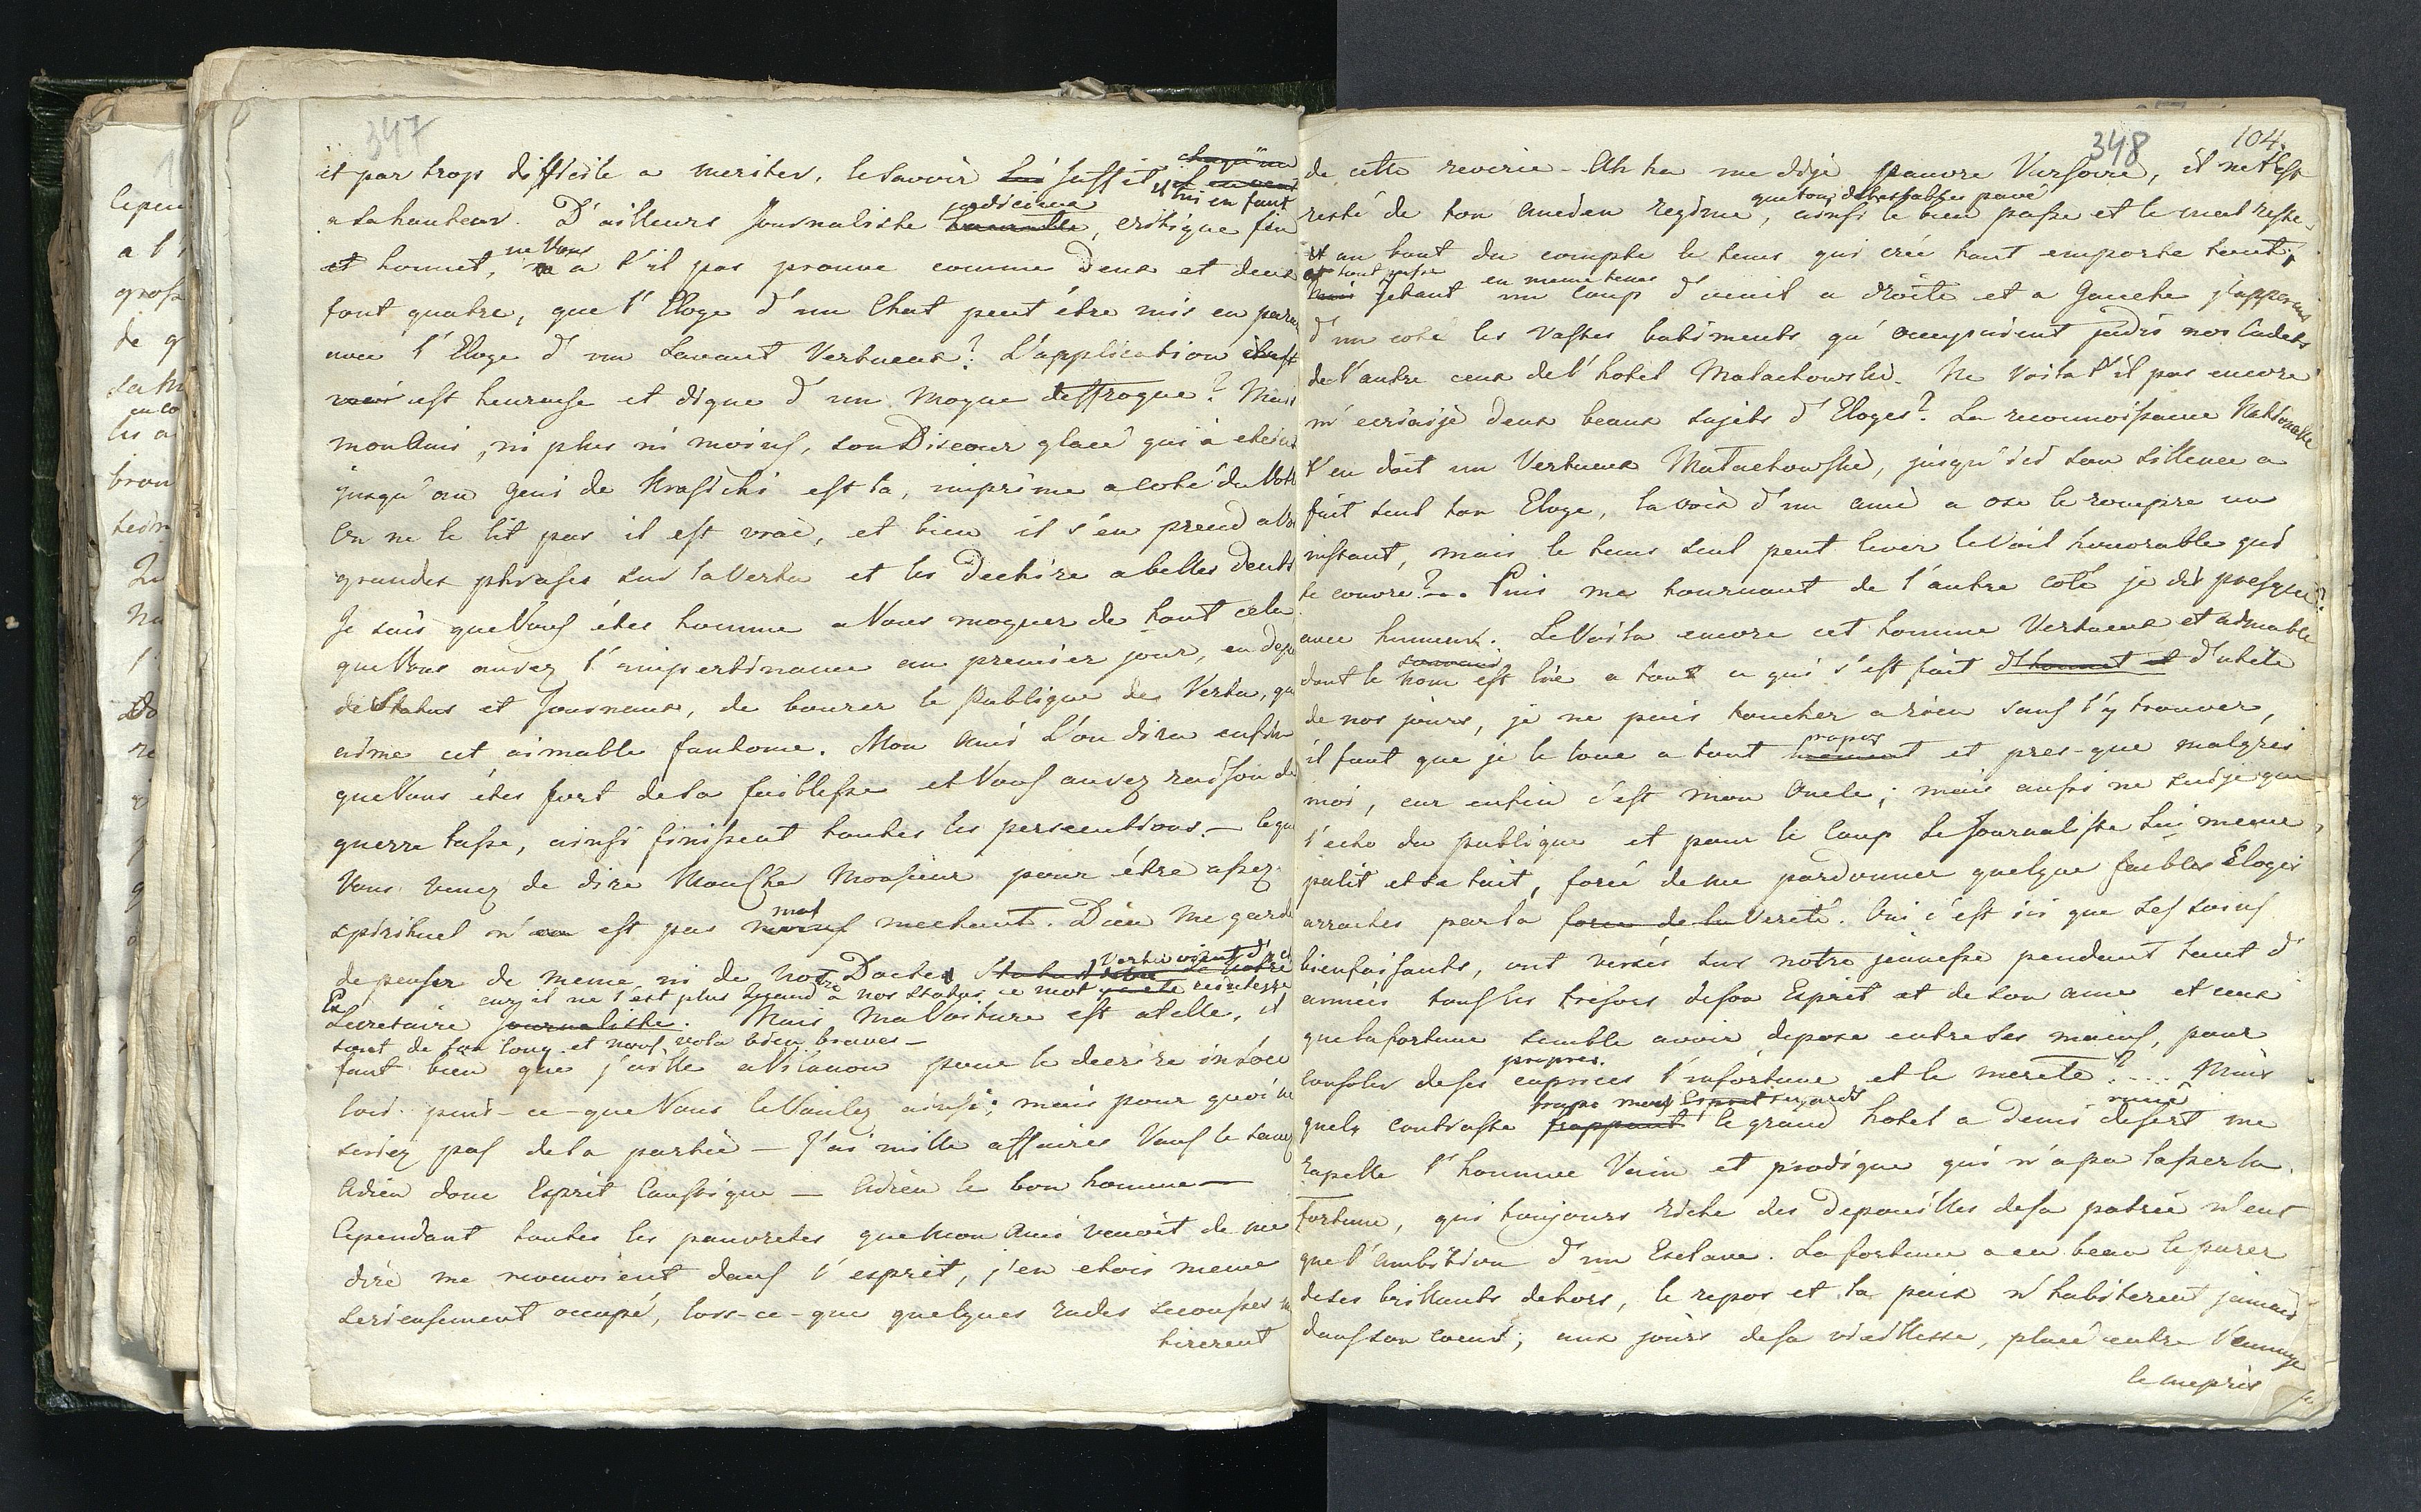 347
chaqu'un
it par trop difficile a meriter, le savoir lui suffit et en veut
il lui en faut
a sa hauteur. D'ailleurs Journaliste judicieux, critique fin
et honnet, ne Vous a t'il pas prouve comme deux et deux
font quatre, que l'Eloge d'un Chat peut être mis en
avec l'Eloge d'un Savant Vertueux? L'application
vrai est heureuse et digne d'un Moque deffroque? Mais
mon Ami, ni plus ni moins, son Discour glacé qui à eteint
jusqu'au geni de Krasicki est la, imprime a coté du Votre
On ne le lit pas il est vrai, et bien il s'en prend a Vos
grandes phrases sur la Vertu et les dechire a belles dents
Je sais que Vous étes homme a Vous moquer de tout cela
que Vous aurez l'impertinance au premier jour, en depit
de Status et Journeaux, de bourer le Publique de Vertu, qu
aime cet aimable fantome. Mon Ami L'on dira enfin
que Vous étes fort de sa faiblesse et Vous aurez raison de
guerre lasse, ainsi finissent toutes les persecutions. — Ce que
Vous venez de dire Mon Cher Monsieur pour être assez
mal
spirituel n'en est pas moins mechant. Dieu me garde
de penser de meme ni de notre Docte
Vertu vient d'
Ex car il ne l'est plus quand à nos Status ce mot reintegre
Secretaire Journaliste. Mais ma Voiture est atelle, il
sont de fer long et neuf voila bien braves —
faut bien que j'aille a Vilanow pour le decrire in so
lord puis-ce-que Vous le Voulez ainsi; mais pour quoi ne
seriez pas de la partie — J'ai mille affaires Vous le savez
Adieu donc Esprit Caustique — Adieu le bon homme —
Cependant toutes les pauvretes que mon Ami venoit de me
dire me revenoient dans l'esprit, j'en etois meme
serieusement occupé, lors-ce-que quelques rudes secousses m
tirerent
348
104.
de cette reverie. Ah ha me dije pauvre Varsovie, il ne t'est
que ton detestables pavé
resté de ton ancien regime, ainsi le bien passe et le mal reste.
et au bout du compte le tems qui crée tout emporte tout;
et tout passe en meme tems
Ainsi jetant un coup d'oeuil a droite et a gauche j'apperçus
d'un coté les vastes batiments qu'occupoient jadis nos Cadets
de l'autre ceux de l'hotel Malachowski. Ne Voila t'il pas encore
m'ecriaije deux beaux sujets d'Eloges? La reconnoissance Nationale
t'en doit un Vertueux Malachowski, jusqu'ici son sillence a
fait seul ton Eloge, la voix d'un ami a ose le rompre un
instant, mais le tems seul peut lever le Voil honorable qui
te couvre?... Puis me tournant de l'autre coté je dis presque
avec humeur. Le Voila encore cet homme Vertueux et aimable
souvenir
dont le nom est lié a tout ce qui s'est fait d'honnet et d'utile
de nos jours, je ne puis toucher a rien sans l'y trouver,
propos
il faut que je le loue a tout moment et pres-que malgrés
moi, car enfin c'est mon Oncle; mais aussi ne suisje que
l'echo du publique et pour le Coup le Journaliste lui meme
palit et se tait, forcé de me pardonner quelque faibles Éloges
arrachés par la force de la Verité. Oui c'est ici que ses soins
bienfaisants, ont versés sur notre jeunesse pendant tant d'
années tous les tresors de son Esprit et de son ame et ceux
que la fortune semble avoir deposé entre ses mains, pour
propres
consoler de ses caprices l'infortune et le merite?.... Mais
frape mes regards
ruiné
quels contraste frappant le grand hotel a demi desert me
rapelle l'homme Vain et prodigue qui n'a pu lasser la
fortune, qui toujours riche des depouilles de sa patrie n'eut
que l'ambition d'un Esclave. La fortune a eu beau le parer
de ses brillants dehors, le repos et la paix n'habiterent jamais
dans son coeur; aux jours de sa vieillesse, placé entre l'ennuye
le mepris